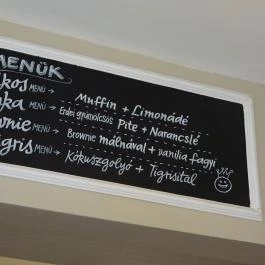 MENÜK
kos MENÜ → Muffin + Limonádé
ka MENÜ → Erdei gyümölcsös Pite + Narancslé
wnie MENÜ → Brownie málnával + vanília fagyi
gris MENÜ → Kókuszgolyó + Tigrisital